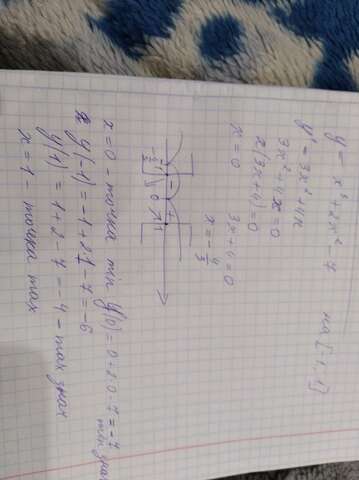 y = x³ + 2x² - 7 на [-1; 1]
y' = 3x² + 4x
3x² + 4x = 0
x(3x + 4) = 0
x = 0 3x + 4 = 0
x = -4/3
-4/3 -1 0 1
- +
x = 0 - точка min y(0) = 0 + 2·0 - 7 = -7 min знач
y(-1) = -1 + 2·1 - 7 = -6
y(1) = 1 + 2 - 7 = -4 - max знач
x = 1 - точка max